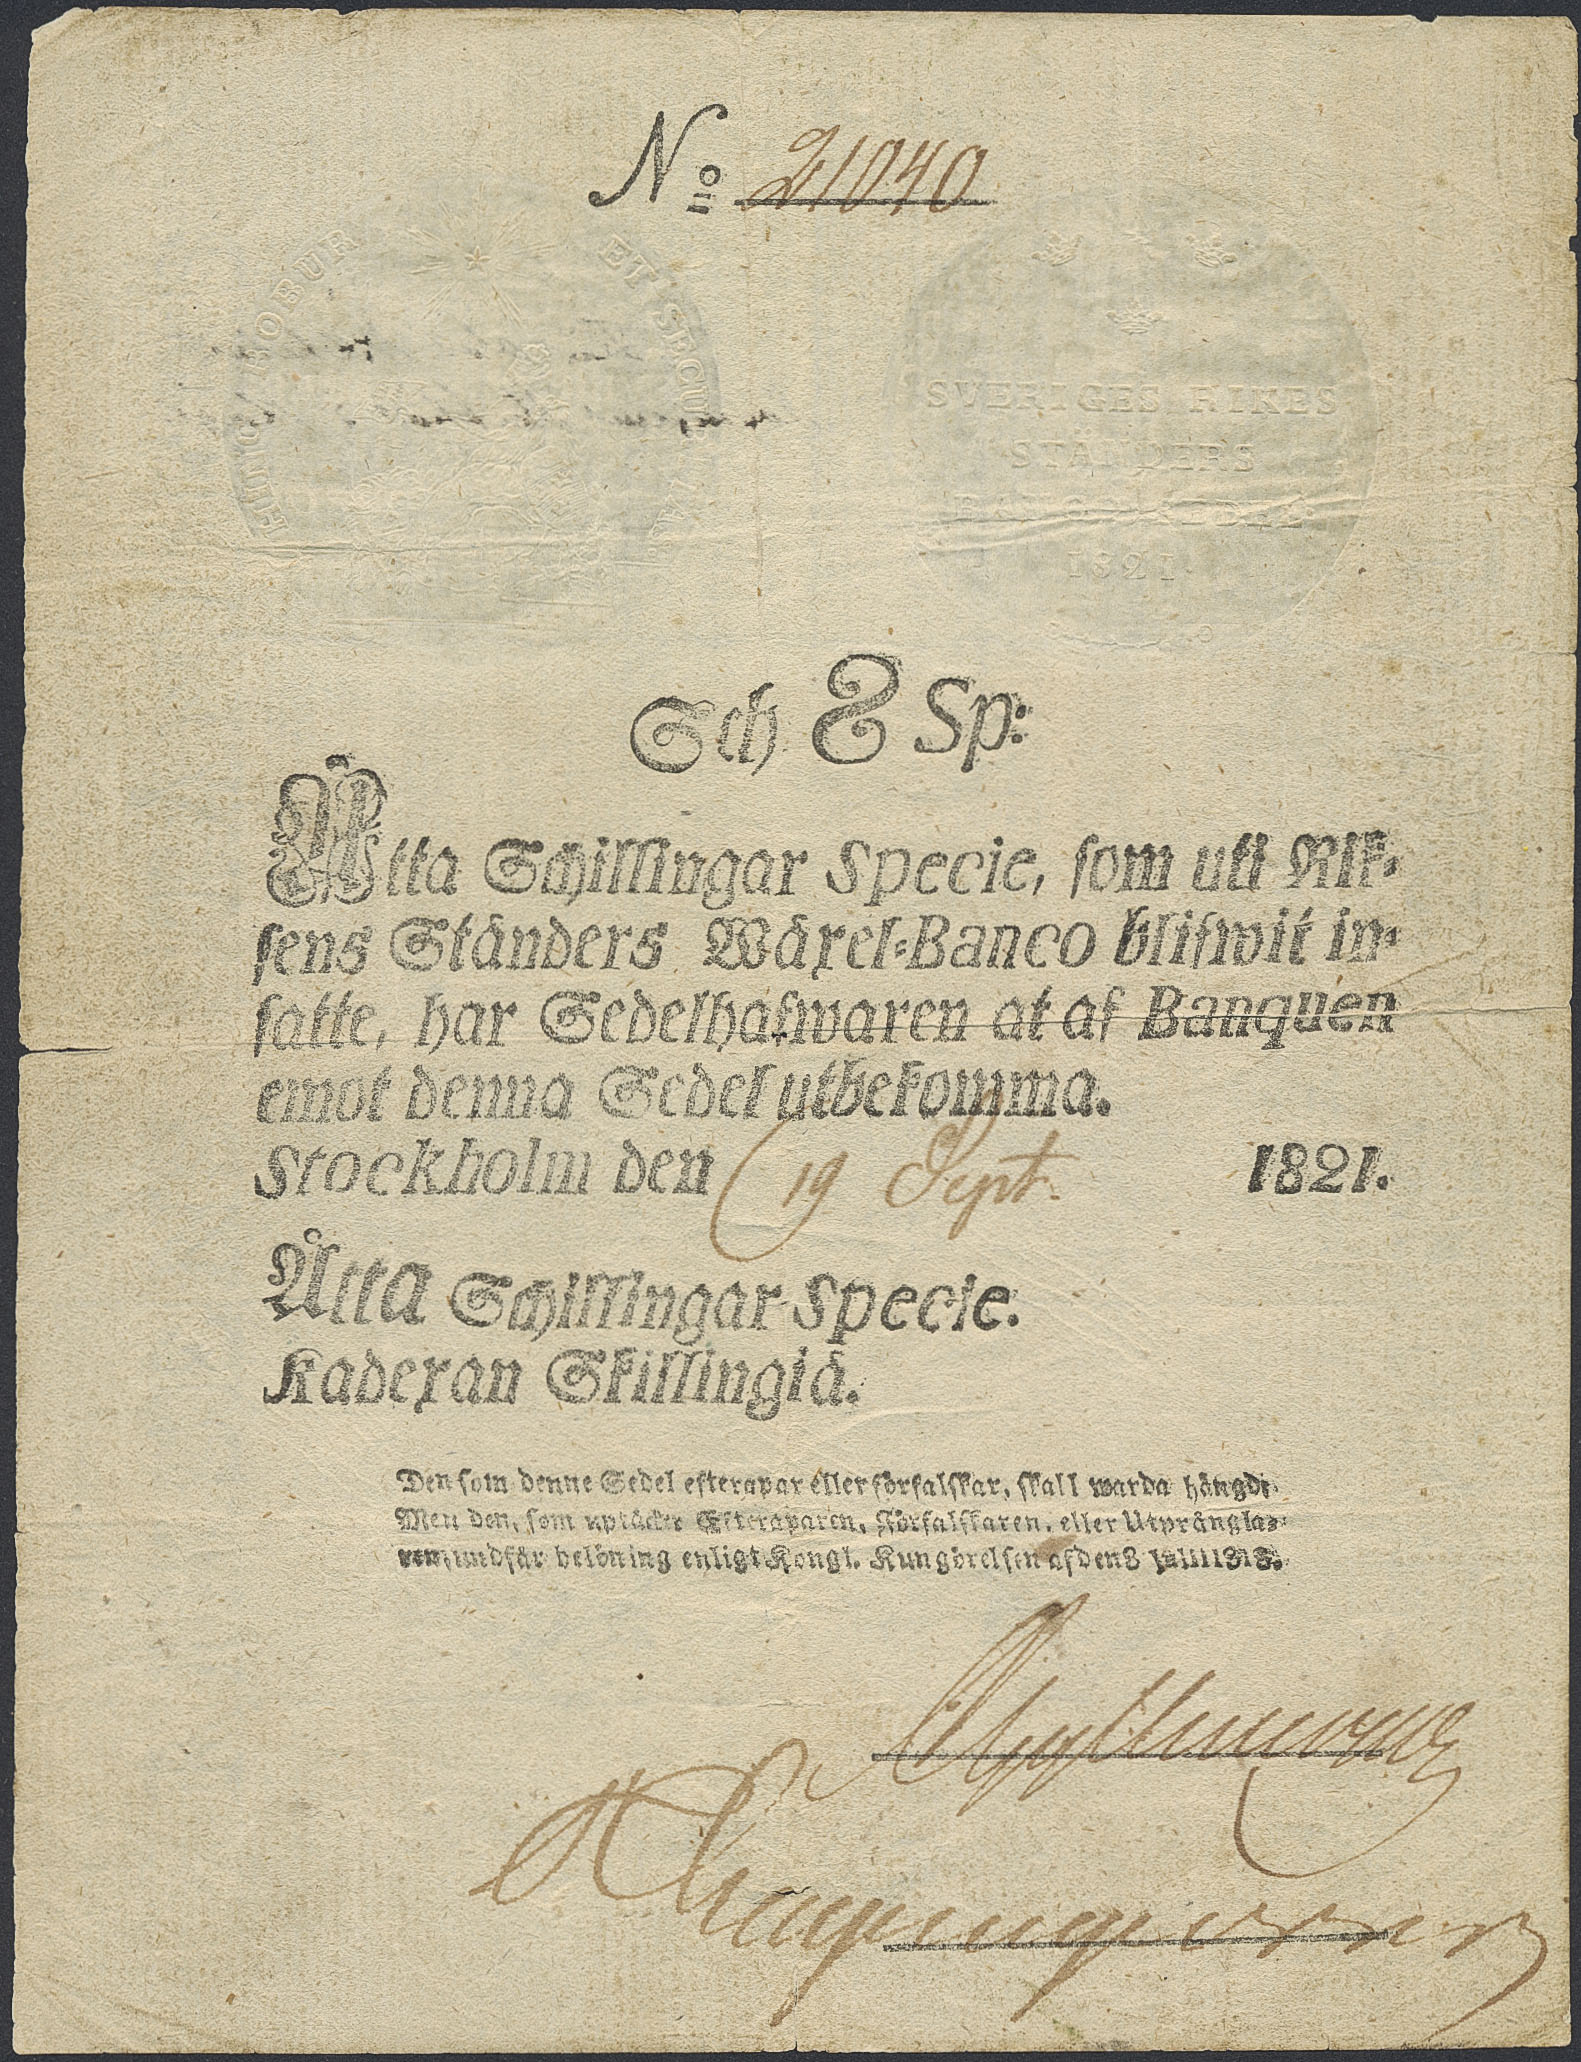 No 21040
HINC ROBUR ET SECURITAS
SVERIGES RIKES
STÄNDERS
BANCO SEDEL
1821.
Sch 8 Sp:
Åtta Schillingar Specie, som uti Rik-
sens Ständers Wäxel-Banco blifwit in-
satte, har Sedelhafwaren at af Banquen
emot denna Sedel utbekomma.
Stockholm den 19 Sept. 1821.
Åtta Schillingar Specie.
Kadexan Skillingiä.
Den som denne Sedel efterapar eller förfalskar, skall warda hängd;
Men den, som uptäcker Efteraparen, Förfalskaren, eller Utprångla-
ren, undfår belöning enligt Kongl. Kungörelsen af den 8 Julii 1818.